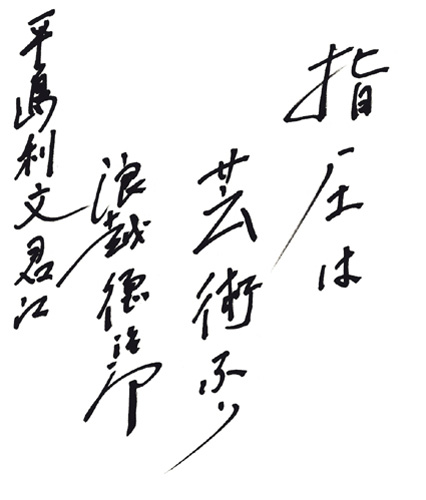 指圧は
芸術なり
浪越徳治郎
平島利文君江